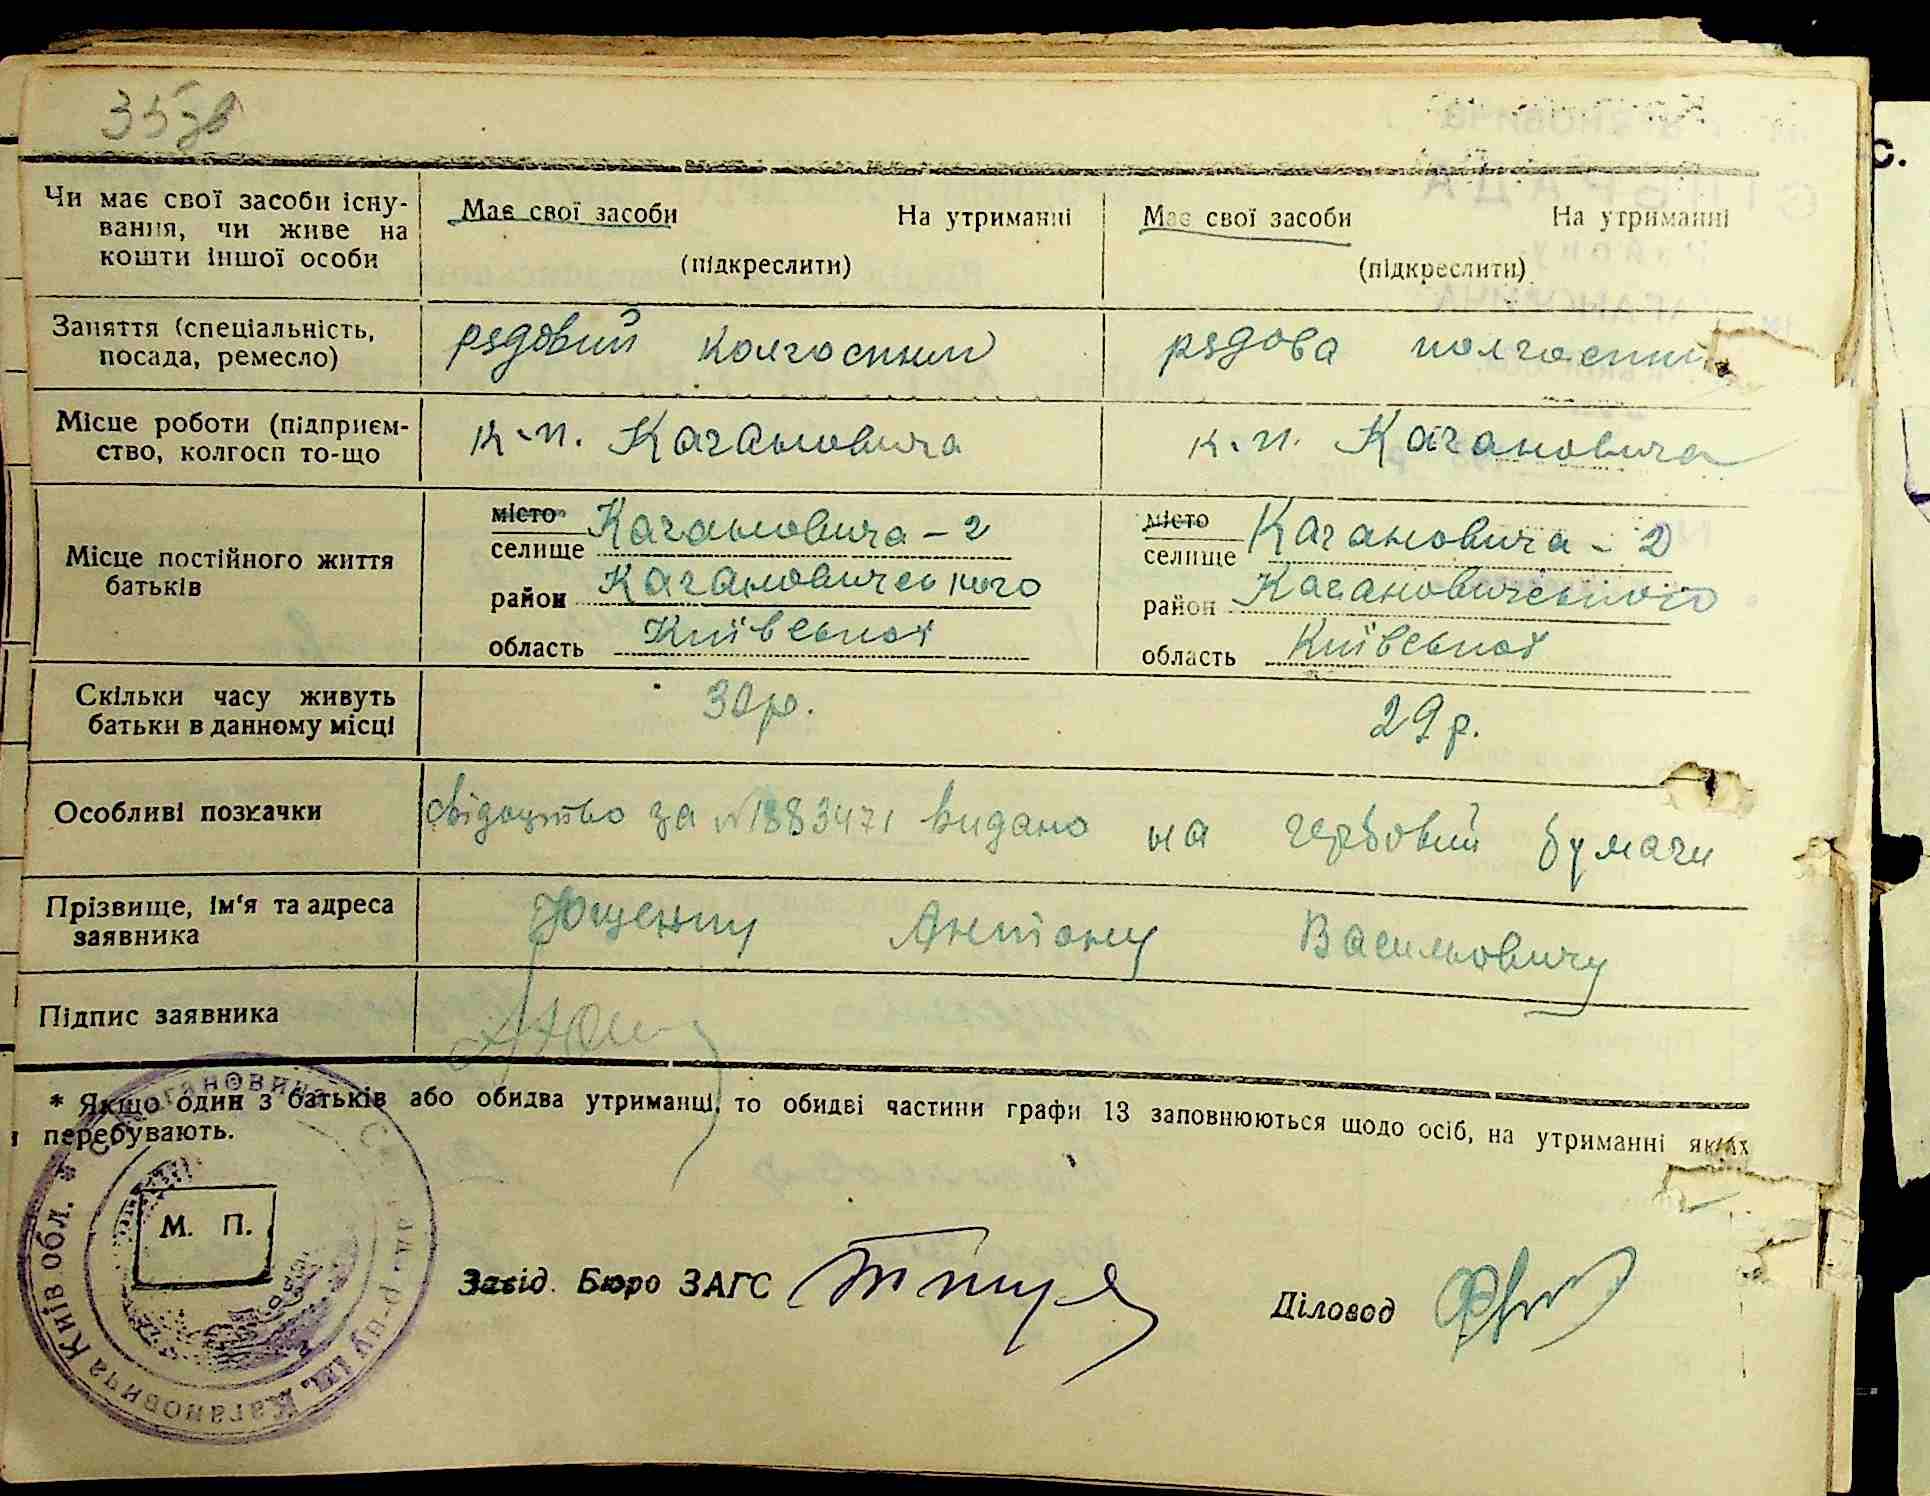 35зв
Чи має свої засоби існу-
вання, чи живе на
кошти іншої особи
Має свої засоби На утриманні
(підкреслити)
Має свої засоби На утриманні
(підкреслити)
Заняття (спеціальність,
посада, ремесло)
рядовий колгоспник
рядова колгоспни
Місце роботи (підприєм-
ство, колгосп то-що
к-п. Кагановича
к.п. Кагановича
Місце постійного життя
батьків
місто
селище Кагановича - 2
район Кагановичського
область Київської
місто
селище Кагановича - 2
район Кагановичського
область Київської
Скільки часу живуть
батьки в данному місці
30 р.
29 р.
Особливі позначки
свідоцтво за №1883471 видано на гербовий бумаги
Прізвище, ім'я та адреса
заявника
Ющенку Антону Васильовичу
Підпис заявника
* Якщо один з батьків або обидва утриманці, то обидві частини графи 13 заповнюються щодо осіб, на утриманні яких
перебувають.
М. П.
р-ну ім. Кагановича Київ обл. * Кагановича
Завід. Бюро ЗАГС
Діловод